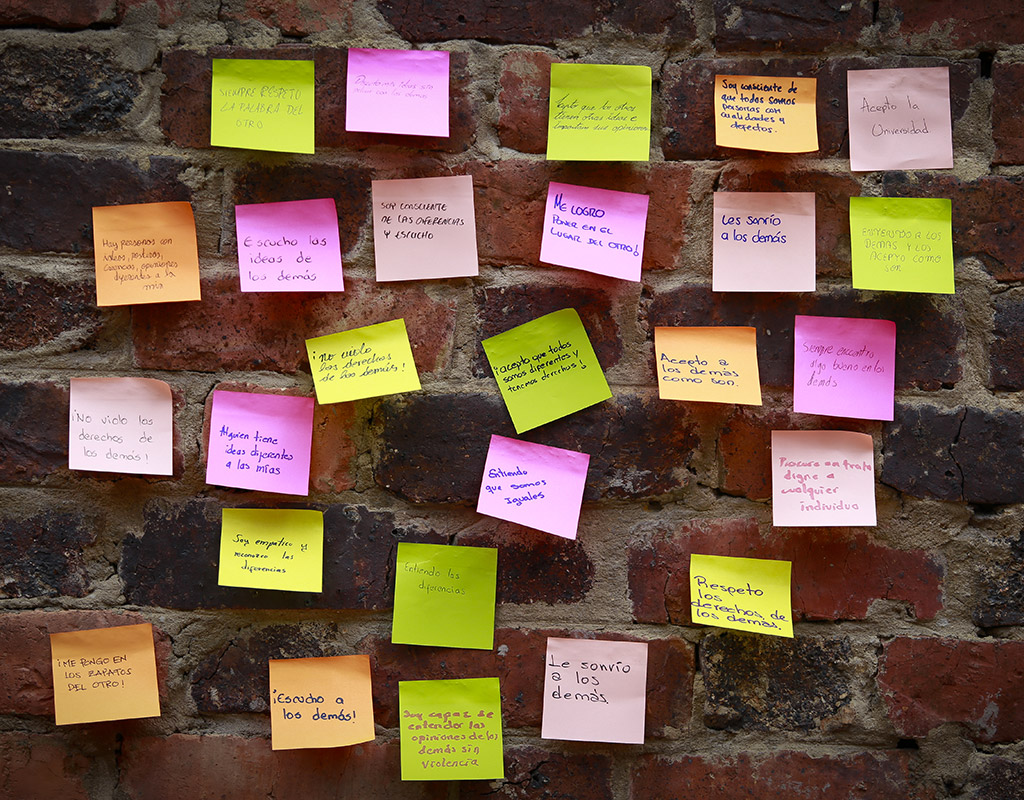 SIEMPRE RESPETO
LA PALABRA DEL
OTRO
ideas
con los demás
Acepto que los otros
tienen otras ideas e
sus opiniones
Soy consciente de
que todos somos
personas con
cualidades y
defectos.
Acepto la
Universidad
Hay personas con
ideas, posturas,
creencias, opiniones
diferentes a la
mía
Escucho las
ideas de
los demás
SOY CONSCIENTE
DE LAS DIFERENCIAS
Y ESCUCHO
ME LOGRO
PONER EN EL
LUGAR DEL OTRO!
Les sonrío
a los demás
ENTIENDO A LOS
DEMÁS Y LOS
ACEPTO COMO
SON
¡No violo
los derechos
de los demás!
¡acepto que todos
somos diferentes y
tenemos derechos!
Acepto a
los demás
como son.
Siempre encontro
algo bueno en los
demás
¡No violo los
derechos de
los demás!
Alguien tiene
ideas diferentes
a las mías
Entiendo
que somos
iguales
Procuro un trato
digne a
cualquier
individuo
Soy empático y
reconozco las
diferencias
Entiendo las
diferencias
Respeto
los
derechos de
los demás.
¡ME PONGO EN
LOS ZAPATOS
DEL OTRO!
¡Escucho a
los demás!
Soy capaz de
entender las
opiniones de los
demás sin
violencia
Le sonrío
a los
demás.